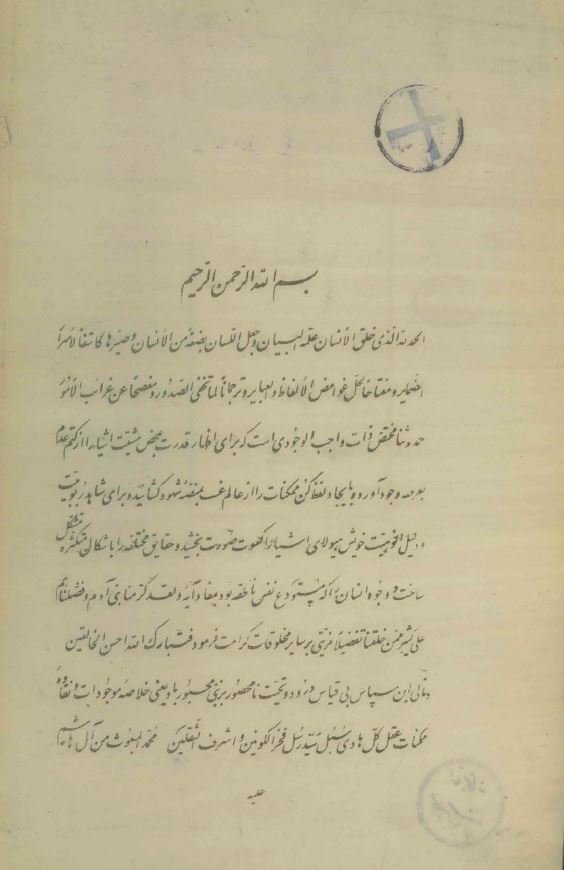 بسم الله الرّحمن الرّحیم
الحمد لله الّذی خلق الأنسان علّمه البیان وجعل اللّسان بضعةً من الأنسان وصیّرها کاشفاً لأسرار
الضّمایر ومفتاحاً لحلّ غوامض الألفاظ والعبایر وترجماناً لما تخفی الصّدور ومفصحاً عن غرائب الأمور
حمد و ثنا مختصّ ذات واجب الوجودی است که برای اظهار قدرت بمحض مشیّت اشیاء را از کتم عدم
بعرصه وجود آورده و بایجاد لفظ کن ممکنات را از عالم غیب بمنصّهٔ شهود کشانید و برای شاهد ربوبیّت
و دلیل الوهیّت خویش هیولای اشیاء را کسوت صورت بخشید و حقایق مختلفه را باشکال متکثّره متشکّل
ساخت و وجود انسان را که مستودع نفس ناطقه بود بمفاد آیهٔ ولقد کرّمنا بنی آدم وفضّلناهم
علی کثیر ممّن خلقنا تفضیلاً مزیّتی بر سایر مخلوقات کرامت فرمود فتبارک الله احسن الخالقین
و تالی این سپاس بی قیاس درود و تحیّت نامحصور بر نبیّ محبور باد یعنی خلاصه موجودات و نقاوه
ممکنات عقل کلّ هادی سُبُل سیّد رسل فخر الکونین و اشرف الثّقلین محمّد المبعوث من آل هاشم
علیه